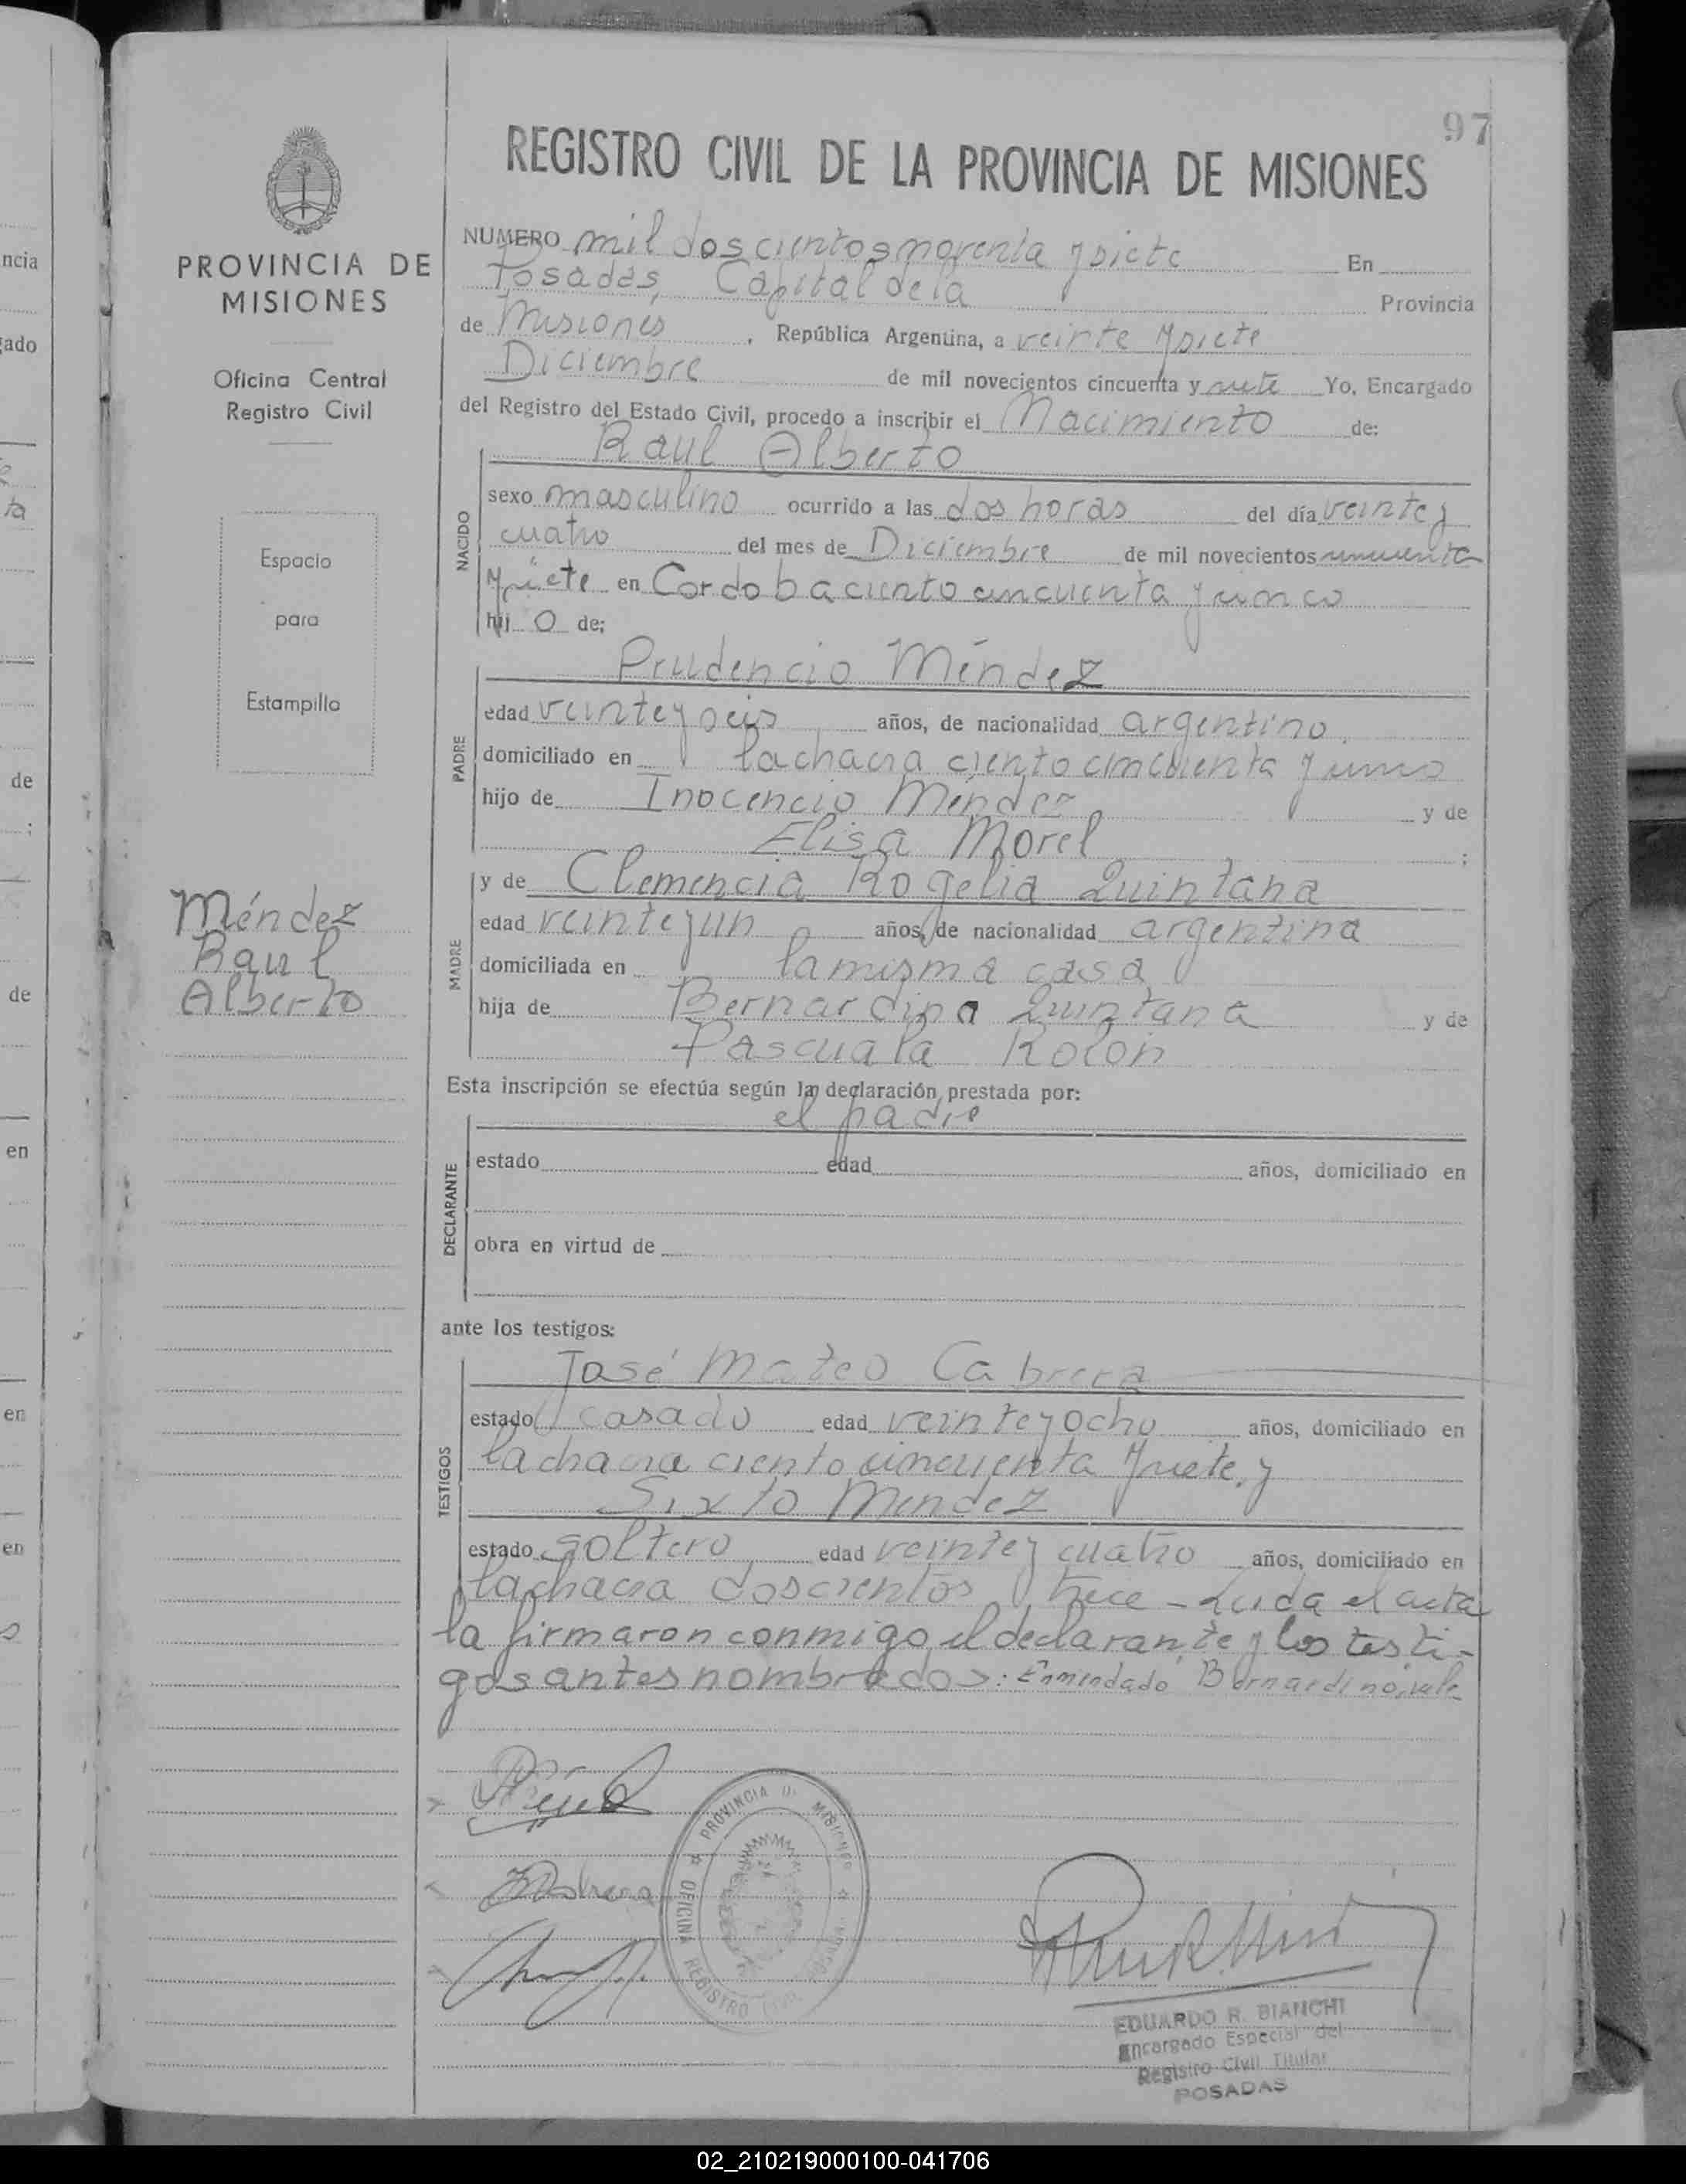 97
REGISTRO CIVIL DE LA PROVINCIA DE MISIONES
PROVINCIA DE
MISIONES
Oficina Central
Registro Civil
Espacio
para
Estampilla
Méndez
Raul
Alberto
NUMERO mil doscientos noventa y siete En
Posadas, Capital de la Provincia
de Misiones, República Argentina, a veinte y siete
Diciembre de mil novecientos cincuenta y siete Yo, Encargado
del Registro del Estado Civil, procedo a inscribir el Nacimiento de:
Raul Alberto
NACIDO
sexo masculino ocurrido a las dos horas del día veinte y
cuatro del mes de Diciembre de mil novecientos cincuenta
y siete en Cordoba ciento cincuenta y cinco
hij o de:
Prudencio Méndez
PADRE
edad veinte y seis años, de nacionalidad argentino,
domiciliado en la chacra ciento cincuenta y uno
hijo de Inocencio Méndez y de
Elisa Morel ;
y de Clemencia Rogelia Quintana
MADRE
edad veinte y un años, de nacionalidad argentina
domiciliada en la misma casa
hija de Bernardino Quintana y de
Pascuala Rolón
Esta inscripción se efectúa según la declaración prestada por:
el padre
DECLARANTE
estado edad años, domiciliado en
obra en virtud de
ante los testigos:
José Mateo Cabrera
TESTIGOS
estado casado edad veinte y ocho años, domiciliado en
la chacra ciento cincuenta y siete, y
Sixto Mendez
estado soltero edad veinte y cuatro años, domiciliado en
la chacra doscientos trece - Leida el acta
la firmaron conmigo, el declarante y los testi-
gos antes nombrados: Enmendado, Bernardino, vale
PROVINCIA DE MISIONES
OFICINA REGISTRO CIVIL
EDUARDO R. BIANCHI
Encargado Especial del
Registro Civil Titular
POSADAS
02_210219000100-041706